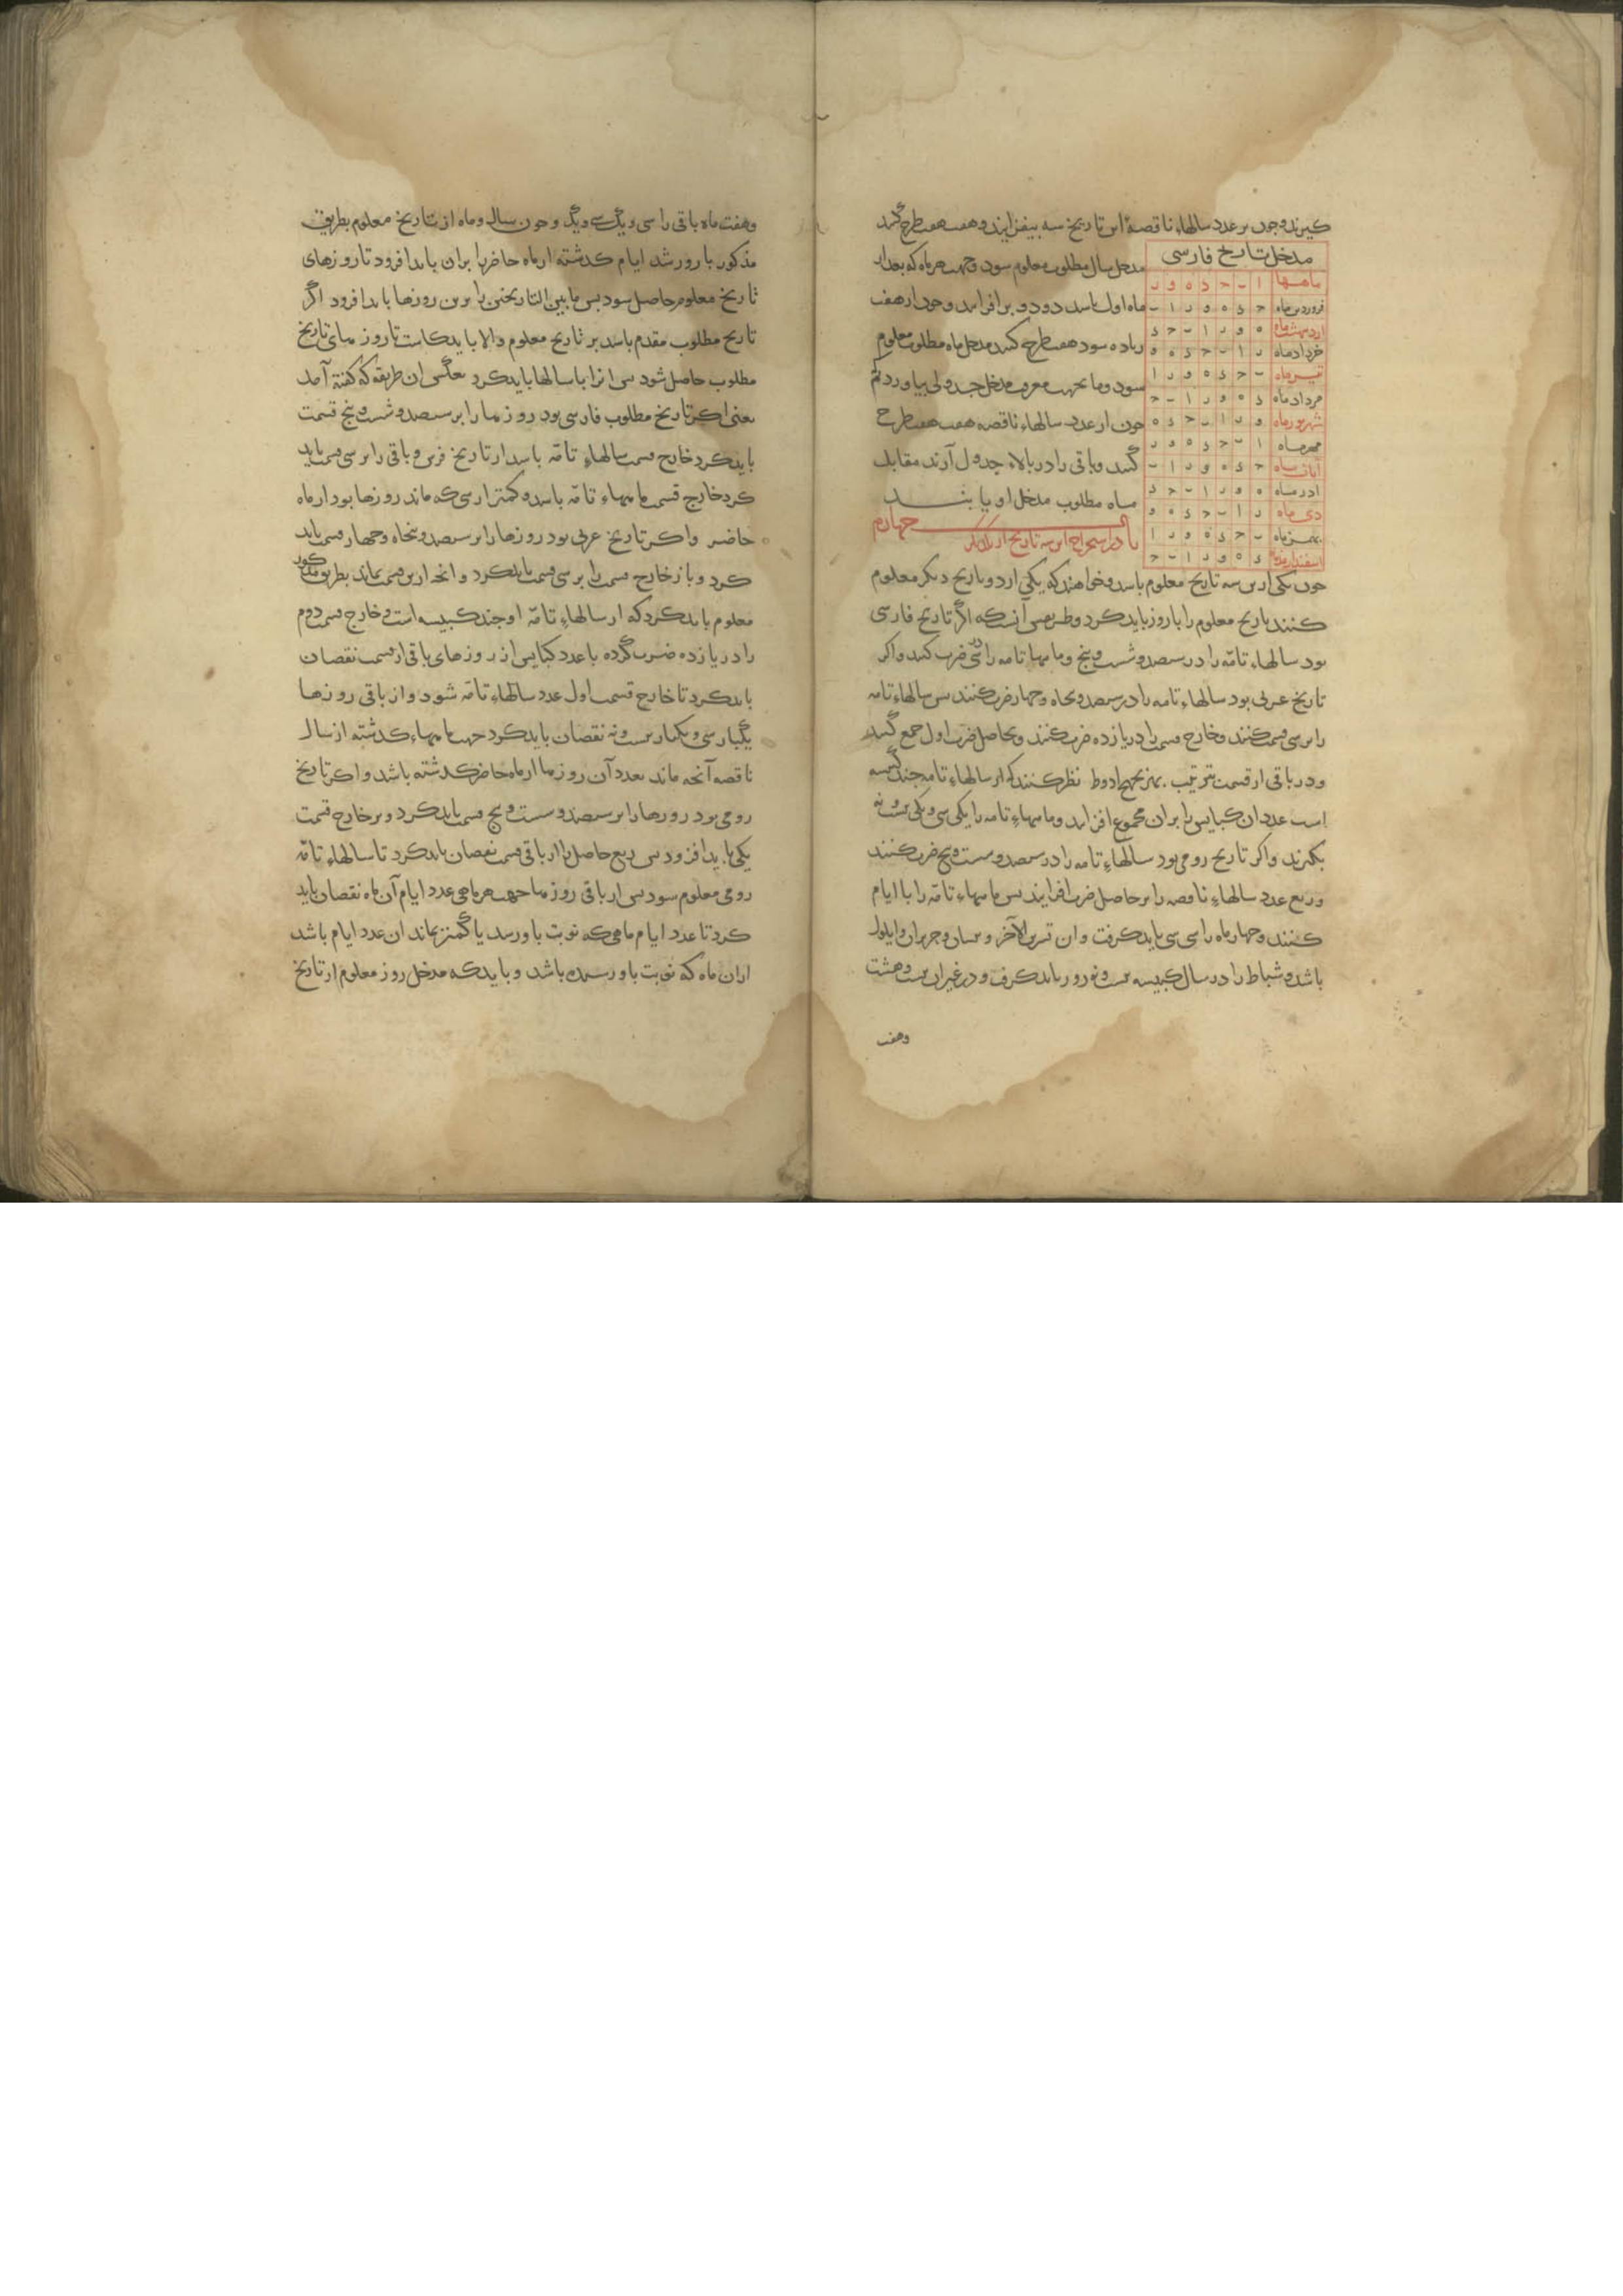 کیرند و چون بر عدد سالهاء ناقصهٔ این تاریخ سه بیفزایند و هفت هفت طرح کنند
مدخل تاریخ فارسی
ماهها ا ب ج د ه و ر
فروردین ماه ج د ه و ر ا ب
اردبهشت ماه ه و ر ا ب ج د
خردادماه ر ا ب ج د ه و
تیرماه ب ج د ه و ر ا
مردادماه د ه و ر ا ب ج
شهریورماه و ر ا ب ج د ه
مهرماه ا ب ج د ه و ر
ابان ماه ج د ه و ر ا ب
ادرماه ه و ر ا ب ج د
دی ماه ر ا ب ج د ه و
بهمن ماه ب ج د ه و ر ا
اسفندارمذ د ه و ر ا ب ج
مدخل سال مطلوب معلوم سود و جهت هر ماه که بعد از
ماه اول باسد دو دو بر افزایند و چون از هفت
زیاده سود هفت طرح کنند مدخل ماه مطلوب معلوم
سود و ما بجهت معرفت مدخل جدولی بیاوردیم
چون از عدد سالهاء ناقصه هفت هفت طرح
کنند و باقی را در بالاء جدول آرند مقابل
ماه مطلوب مدخل او یابند
باب چهارم
در استخراج این سه تاریخ از یکدیگر
چون یکی ازین سه تاریخ معلوم باسد و خواهند که یکی ازدو تاریخ دیکر معلوم
کنند تاریخ معلوم را با روز باید کرد و طریقش آنست که اگر تاریخ فارسی
بود سالهاء تامّه را در سیصد و شست و پنج و ماهها تامه را در سی ضرب کنند و اکر
تاریخ عربی بود سالهاء تامه را در سیصد و پنجاه و چهار ضرب کنند پس سالهاء تامه
را بر سی قسمت کنند و خارج قسمت را در یازده ضرب کنند و بحاصل ضرب اول جمع کنند
و در باقی از قسمت بترتیب بهزیجهح ادوط نظر کنند که از سالهاء تامه چند کبیسه
است عدد ان کبایس را بر ان مجموع افزایند و ماههاء تامه را یکی سی و یکی بیست و نه
بکیرند و اکر تاریخ رومی بود سالهاءِ تامه را در سیصد و شست و پنج ضرب کنند
و ربع عدد سالهاءِ ناقصه را بر حاصل ضرب افزایند پس ماههاء تامّه را با ایام
کنند و چهار ماه را سی سی باید کرفت و ان تشرین الآخر و نیسان و حزیران و ایلول
باشد و شباط را در سال کبیسه بیست و نه روز باید کرفت و در غیر ان بیست و هشت
وهفت
وهفت ماه باقی را سی و یک سی و یک و چون سال و ماه از تاریخ معلوم بطریق
مذکور با روز شد ایام کذشته از ماه حاضر را بر ان باید افزود تا روزهای
تاریخ معلوم حاصل سود پس ما بین التاریخین را برین روزها باید افزود اگر
تاریخ مطلوب مقدم باسد بر تاریخ معلوم و الا باید کاست تا روزهای تاریخ
مطلوب حاصل شود پس انرا با سالها باید کرد بعکس ان طریقه که کفته آمد
یعنی اکر تاریخ مطلوب فارسی بود روزها را بر سیصد و شست و پنج قسمت
باید کرد خارج قسمت سالهاءِ تامّه باسد از تاریخ فرس و باقی را بر سی قسمت باید
کرد خارج قسمت ماههاء تامّه باسد و کمتر از سی که ماند روزها بود از ماه
حاضر و اکر تاریخ عربی بود روزها را بر سیصد و پنجاه و چهار قسمت باید
کرد و باز خارج قسمت را بر سی قسمت باید کرد و انچه ازین قسمت بماند بطریق مذکور
معلوم باید کرد که از سالهاءِ تامّه او چند کبیسه است و خارج قسمت دوم
را در یازده ضرب کرده با عدد کبایس از روزهای باقی از قسمت نقصان
باید کرد تا خارج قسمت اول عدد سالهاء تامّه شود و از باقی روزها
یکبار سی و یکبار بیست و نه نقصان باید کرد جهت ماههاء کذشته از سال
ناقصه آنچه ماند بعدد آن روزها از ماه حاضر کذشته باشد و اکر تاریخ
رومی بود روزها را بر سیصد و شست و پنج قسمت باید کرد و بر خارج قسمت
یکی باید افزود پس ربع حاصل را از باقی قسمت نقصان باید کرد تا سالهاءِ تامّه
رومی معلوم سود پس از باقی روزها جهت هر ماهی عدد ایام آن ماه نقصان باید
کرد تا عدد ایام ماهی که نوبت باو رسد یا کمتر بماند ان عدد ایام باشد
از ان ماه که نوبت باو رسیده باشد و باید که مدخل روز معلوم از تاریخ